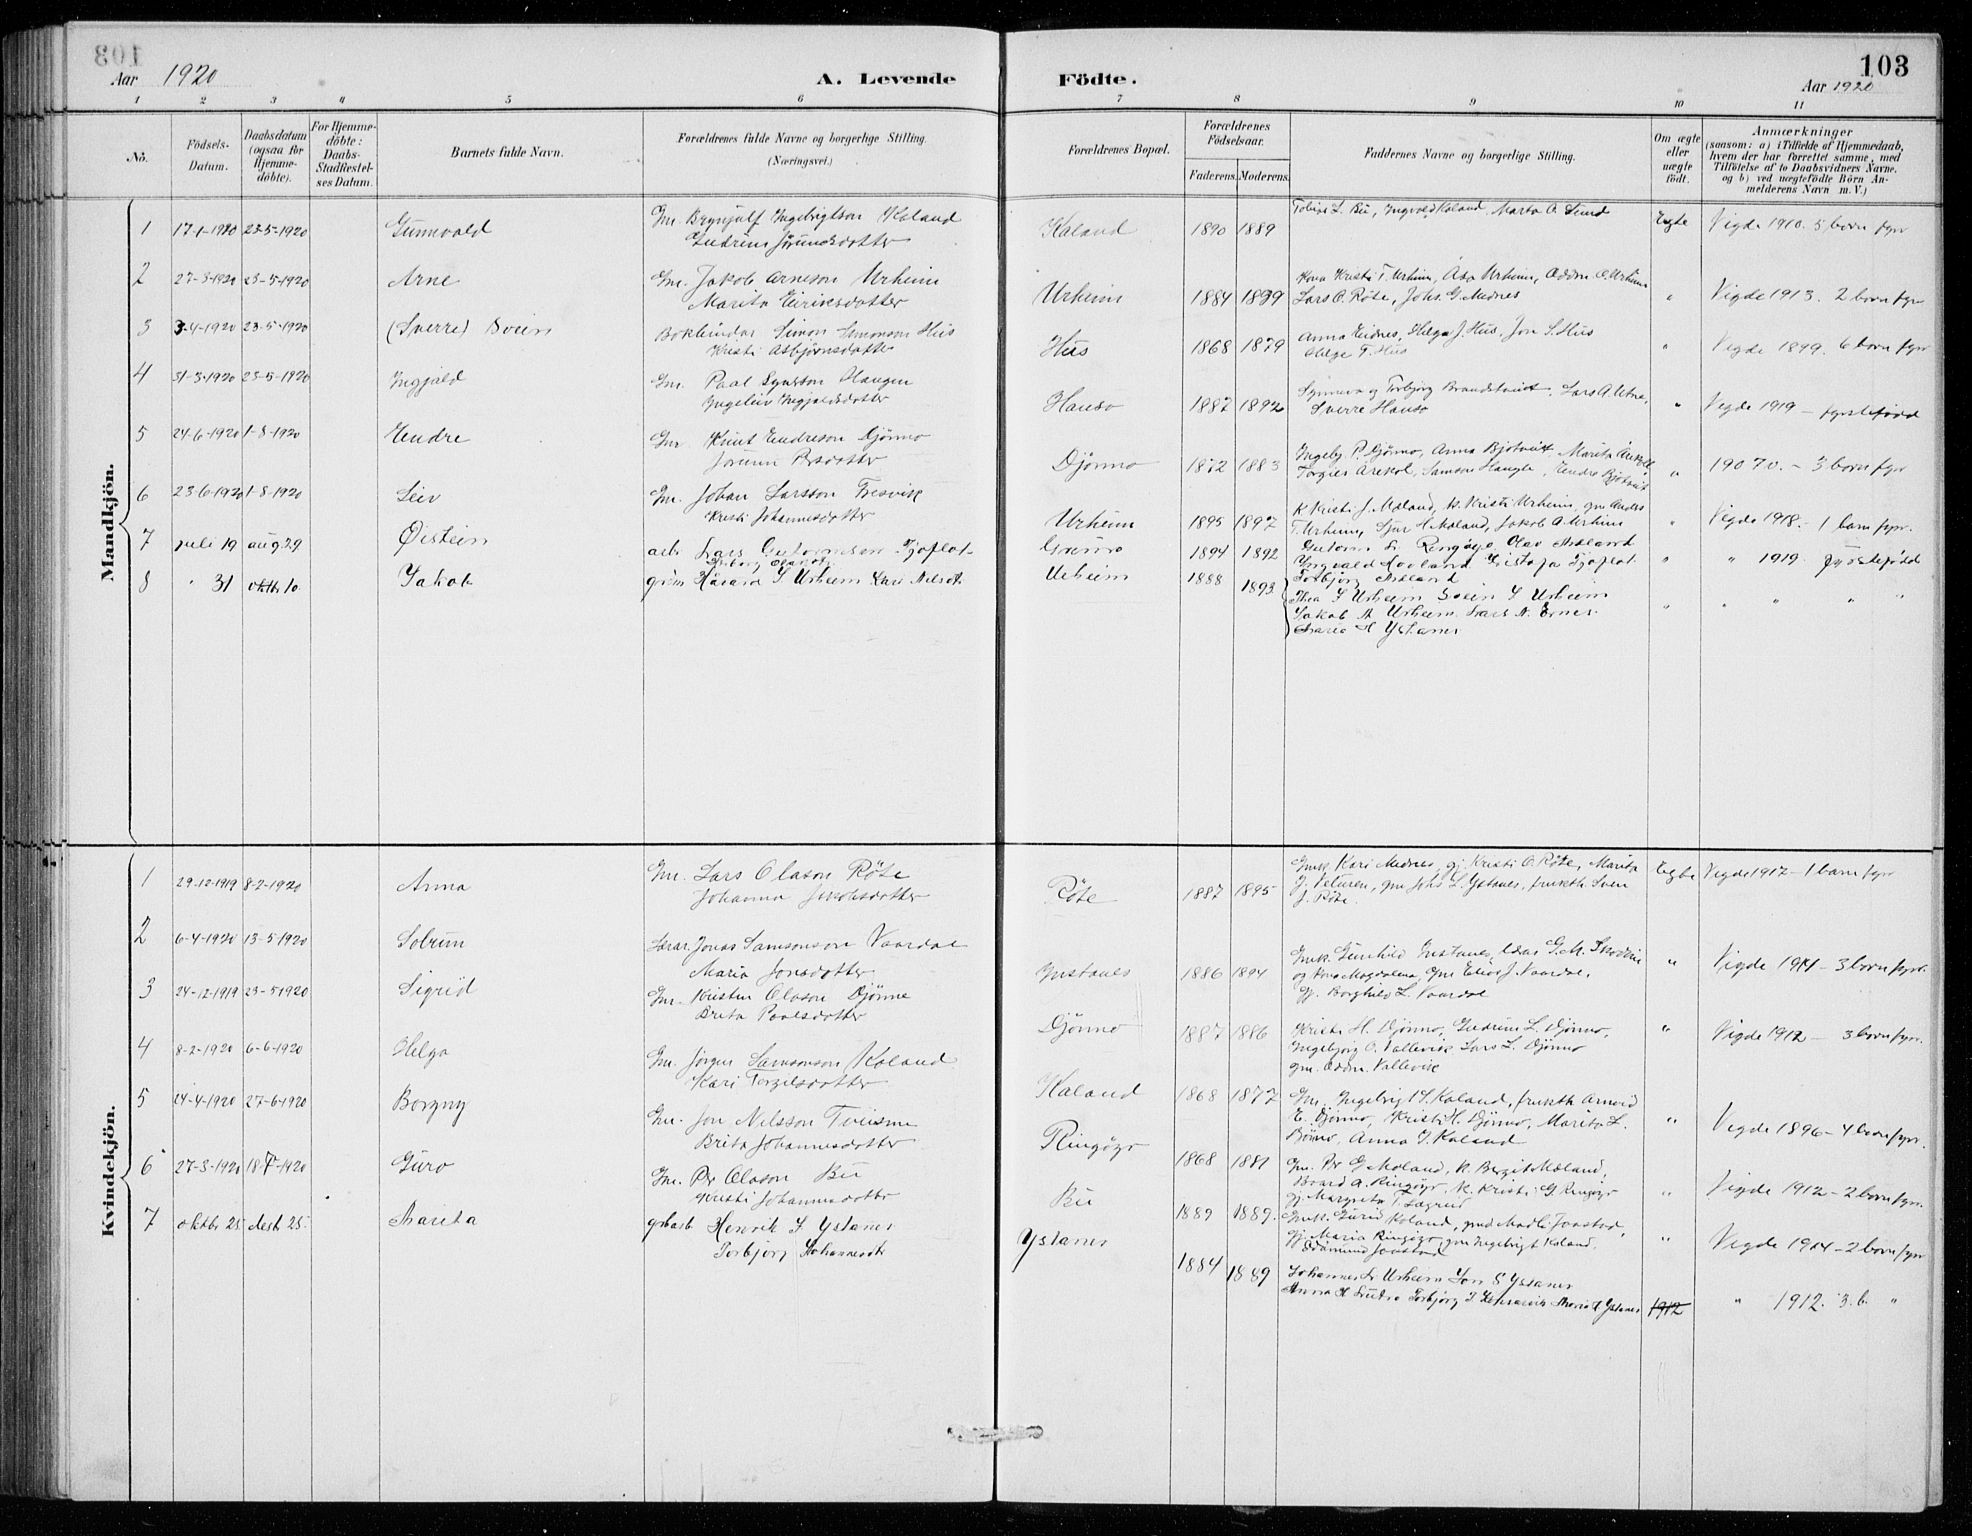 103
Aar 1920
A. Levende
Födte.
103
Aar 1920
1 2 3 4 5 6 7 8 9 10 11
No.
Födsels-Datum.
Daabsdatum (ogsaa for Hjemme-döbte).
For Hjemme-döbte: Daabs-Stadfæstel-ses Datum.
Barnets fulde Navn.
Forældrenes fulde Navne og borgerlige Stilling. (Næringsvei.)
Forældrenes Bopæl.
Forældrenes Födselsaar.
Faderens. Moderens.
Faddernes Navne og borgerlige Stilling.
Om ægte eller uægte födt.
Anmærkninger (saasom: a) i Tilfælde af Hjemmedaab, hvem der har forrettet samme, med Tilföielse af to Daabsvidners Navne. og b) ved uægtefödte Börn An-melderens Navn m. V.)
Mandkjön.
1 17-1-1920 23-5-1920 Gunnvald Gm. Brynjulf Ingebrigtson Kaland
Gudrun Jörundsdotter
Kaland 1890 1889 Tobias L. Bu, Ingvald Kaland, Marta O. Lund Egte Vigde 1910. 5 born fyrr
2 27-3-1920 23-5-1920 Arne Gm. Jakob Arneson Urheim
Marita Eiriksdotter
Urheim 1884 1889 Kona Kristi T. Urheim, Åsa Urheim, Oddm. O. Urheim
Lars O. Röte, Johs. G. Mednes
" Vigde 1913. 2 born fyrr
3 3-4-1920 23-5-1920 (Sverre) Svein Bokbindar Simon Simonson Hus
Kristi Asbjörnsdotter
Hus 1868 1879 Anna Eidnes, Helga J. Hus, Jon S. Hus
Helge T. Hus
" Vigde 1899. 6 born fyrr
4 31-3-1920 23-5-1920 Ingjald Gm. Paal Haugen
Ingeleiv Ingjaldsdotter
Hauso 1887 1892 Synneva og Torbjörg Brandstveit, Lars A. Utne,
Sverre Hauso
" Vigde 1919 - fyrstefødd
5 24-6-1920 1-8-1920 Endre Gm Knut Endreson Djönno
Jorunn Persdotter
Djönno 1872 1883 Ingebj. P. Djönno, Anna Bjotveit, Marita
Torgils Samson Haugse, Endre Bjotveit
" 1907 - 3 born fyrr
6 23-6-1920 1-8-1920 Leiv Gm. Johan Larsson Fresvik
Kristi Johannesdotter
Urheim 1895 1897 K Kristi J. Maland, K. Kristi Urheim, gm Anders
T. Urheim, Sjur H. Maland, Jakob A. Urheim
" Vigde 1918. - 1 barn fyrr.
7 juli 19 aug 29 Øistein arb Lars Gutormsen Tjoflot
1894 1892 Gutorm Ringöyo, Olav
Ingvald Kristofa Tjoflot
Torbjörg
" " 1919. fyrstefödd
8 " 31 oktbr 10. Jakob Haavard S Urheim Kari Nilsdtr
Urheim 1888 1893 Thea S Urheim Svein S Urheim
Jakob A Urheim. Lars N. Ernes
Maria H Ystanes
" " " " "
Kvindekjön.
1 29-12-1919 8-2-1920 Anna Gm. Lars Olason Röte
Johanna Jakobsdotter
Röte 1887 1895 Gmk. Kari Mednes, gj. Kristi O. Röte, Marita
J. Veturen, gm Johs L. Ystanes, fruktb. Svein
J. Röte.
Egte Vigde 1917 - 1 barn fyrr
2 6-4-1920 13-5-1920 Solrun Lærar Jonas Samsonson Vaardal
Maria Jonsdotter
Ystanes 1886 1894 Gmk. Gunhild Ystanes, G. M. Skodvin
og Magdalena, Gm Elias J. Vaardal,
gj. Borghild L. Vaardal
" Vigde 1914 - 3 born fyrr.
3 24-12-1919 23-5-1920 Sigrid Gm. Kristen Olason Djönne
Brita Paalsdotter
Djönno 1887 1886 Kristi H. Djönno, Gudrun L. Djönno,
Ingebjörg O. Vallevik Lars L. Djönno
gm. Oddm. Vallevik
" Vigde 1912 - 3 born fyrr.
4 8-2-1920 6-6-1920 Helga Gm. Jörgen Samsonson Kaland
Kari Torgilsdotter
Kaland 1868 1877 Gm. Ingebrigt S. Kaland, fruktb. Arnvid
E. Djönno, Kristi H. Djönno, Marita L.
Djönno, Anna J. Kaland
" Vigde 1896 - 4 born fyrr.
5 24-4-1920 27-6-1920 Borgny Gm. Jon Nilsson Tveisme
Brita Johannesdotter
Ringöyo 1868 1881 Gm. Per G. Maland, K. Bergit Maland,
Baard A. Ringöyo, K. Kristi G. Ringöyo
gj. Margreta T.
" Vigde 1912 - 2 born fyrr.
6 27-3-1920 18-7-1920 Guro Gm. Per Olason Bu
Kristi Johannesdotter
Bu 1889 1889. Gmk. Gurid Kaland, gmd Madli Jaastad,
gj. Maria Ringöyo, gm Ingebrigt Kaland,
Edmund Jaastad
" Vigde 1914 - 2 born fyrr
7 oktbr 25. desb 25. Marita Henrik S. Ystanes
Torbjörg Johannesdtr
Ystanes 1884 1889 Johannes Urheim Jon S Ystanes
Anna H Torbjörg Maria H Ystanes
1912 " 1912. 3 b. "